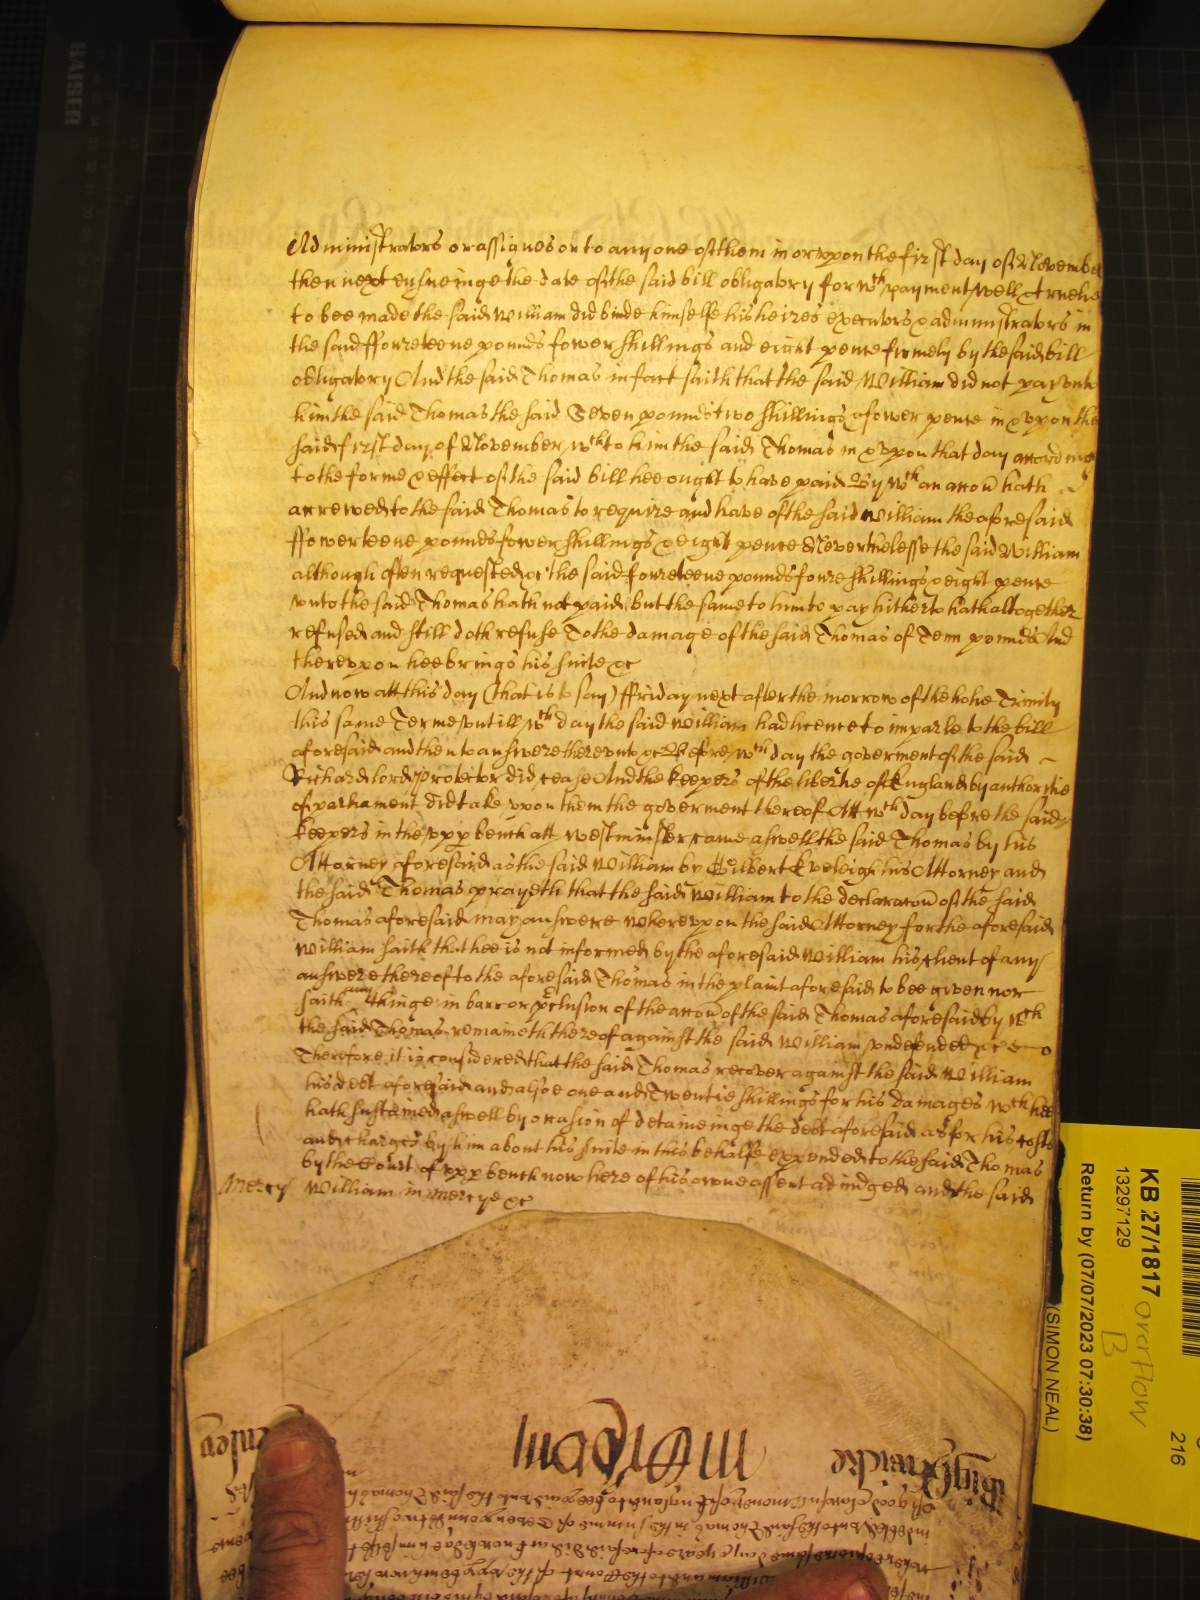 Administrators or assignes or to any one of them in or vpon the first day of November
then next ensueinge the date of the said bill obligatory for wch payment well & truelie
to bee made the said William did binde himselfe his heires executors & administrators in
the said ffoureteene pounds fower shillings and eight pence firmely by the said bill
obligatory And the said Thomas in fact saith that the said William did not pay vnto
him the said Thomas the said Seven pounds two shillings & fower pence in & vpon the
said first day of November wch to him the said Thomas in & vpon that day according
to the forme & effect of the said bill hee ought to have paid By wch an accon hath
accrewed to the said Thomas to require and have of the said William the aforesaid
ffowerteene pounds fower shillings & eight pence Neverthelesse the said William
although often requested &c the said foureteene pounds foure shillings & eight pence
vnto the said Thomas hath not paid but the same to him to pay hitherto hath altogether
refused and still doth refuse To the damage of the said Thomas of Tenn pounds And
therevpon hee brings his suite &c
And now att this day (that is to say) ffriday next after the morrow of the holie Trinity
this same Terme vntill wch day the said William had licence to imparle to the bill
aforesaid and then to answere therevnto &c Before wch day the goverment of the said
Richard lord protector did cease And the keepers of the libertie of England by authoritie
of parliament did take vpon them the goverment thereof Att wch day before the said
keepers in the vpp bench att Westminster came aswell the said Thomas by his
Attorney aforesaid as the said William by Gilbert Eveleigh his Attorney and
the said Thomas prayeth that the said William to the declaracon of the said
Thomas aforesaid may answere Wherevpon the said Attorney for the aforesaid
William saith that hee is not informed by the aforesaid William his client of any
answere thereof to the aforesaid Thomas in the plaint aforesaid to bee given nor
saith any thinge in barr or pclusion of the accon of the said Thomas aforesaid by wch
the said Thomas remaineth thereof against the said William vndefended &c
Therefore it is considered that the said Thomas recover against the said William
his debt aforesaid and alsoe one and Twentie shillings for his damages wch hee
hath susteined aswell by occasion of detaineinge the debt aforesaid as for his costs
and charges by him about his suite in this behalfe expended to the said Thomas
by the Court of vpp bench now here of his owne assent adiudged and the said
Mercy William in mercye &c
KB 27/1817
13297129
Return by (07/07/2023 07:30:38)
(SIMON NEAL)
overflow
B
216
HAISER